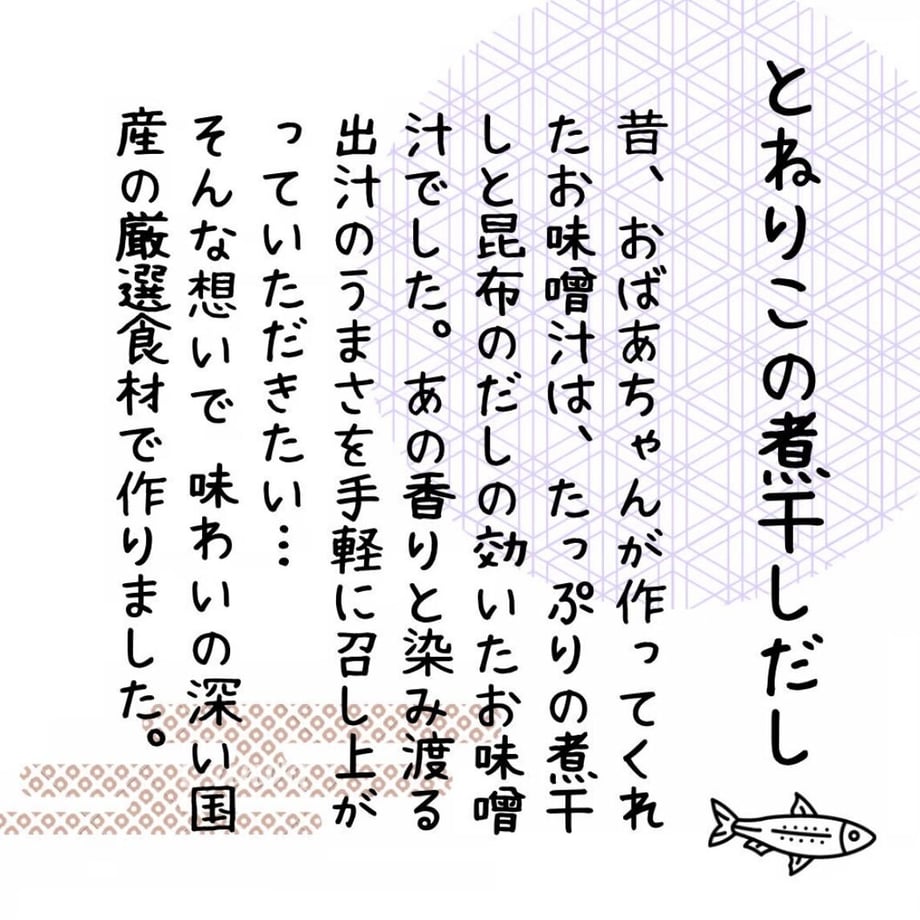 とねりこの煮干しだし
昔、おばあちゃんが作ってくれ
たお味噌汁は、たっぷりの煮干
しと昆布のだしの効いたお味噌
汁でした。あの香りと染み渡る
出汁のうまさを手軽に召し上が
っていただきたい…
そんな想いで 味わいの深い国
産の厳選食材で作りました。